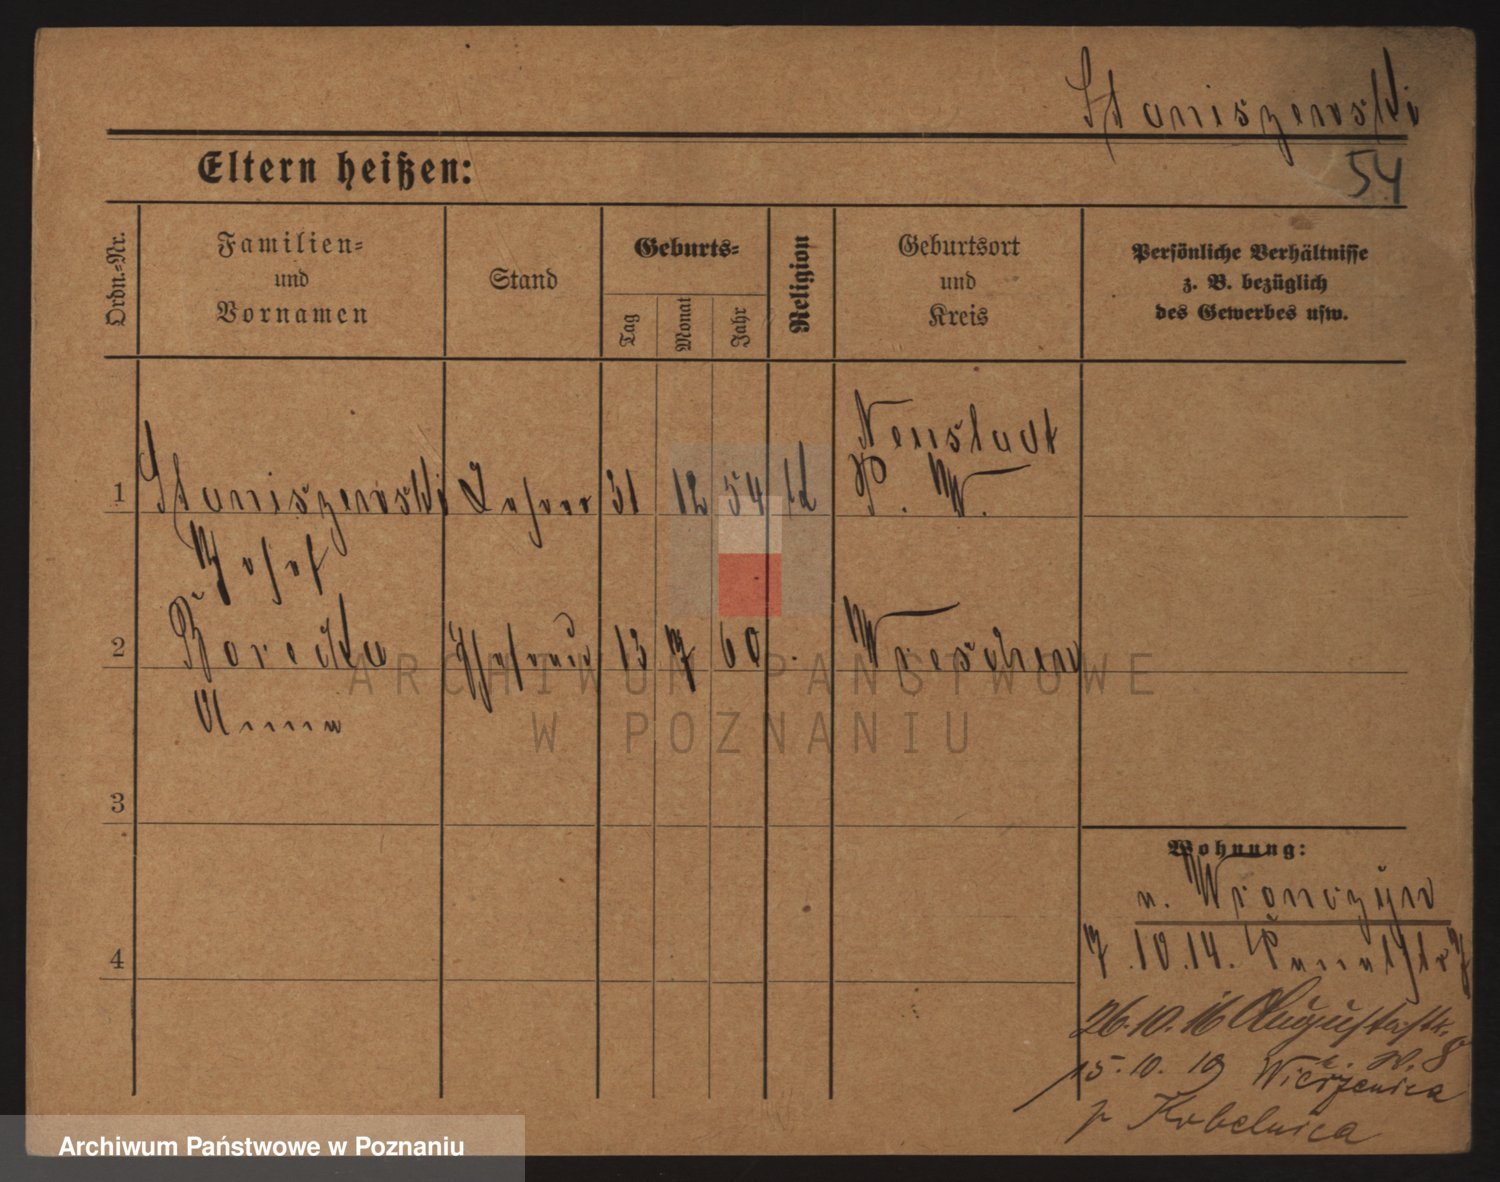 Staniszewski
54
Eltern heißen:
Ordn.-Nr.
Familien-
und
Vornamen
Stand
Geburts-
Tag
Monat
Jahr
Religion
Geburtsort
und
Kreis
Persönliche Verhältnisse
z. B. bezüglich
des Gewerbes usw.
1 Staniszewski Lehrer 31 12 54 Neustadt
Josef
2 Borecka Ehefrau 13 7 60 Wreschen
Anna
3
4
Wohnung:
n. Wronczyn
7.10.14.
26.10.16 Augustastr.
15.10.19 Wierzenica
p Kobelnica
ARCHIWUM PAŃSTWOWE
W POZNANIU
Archiwum Państwowe w Poznaniu